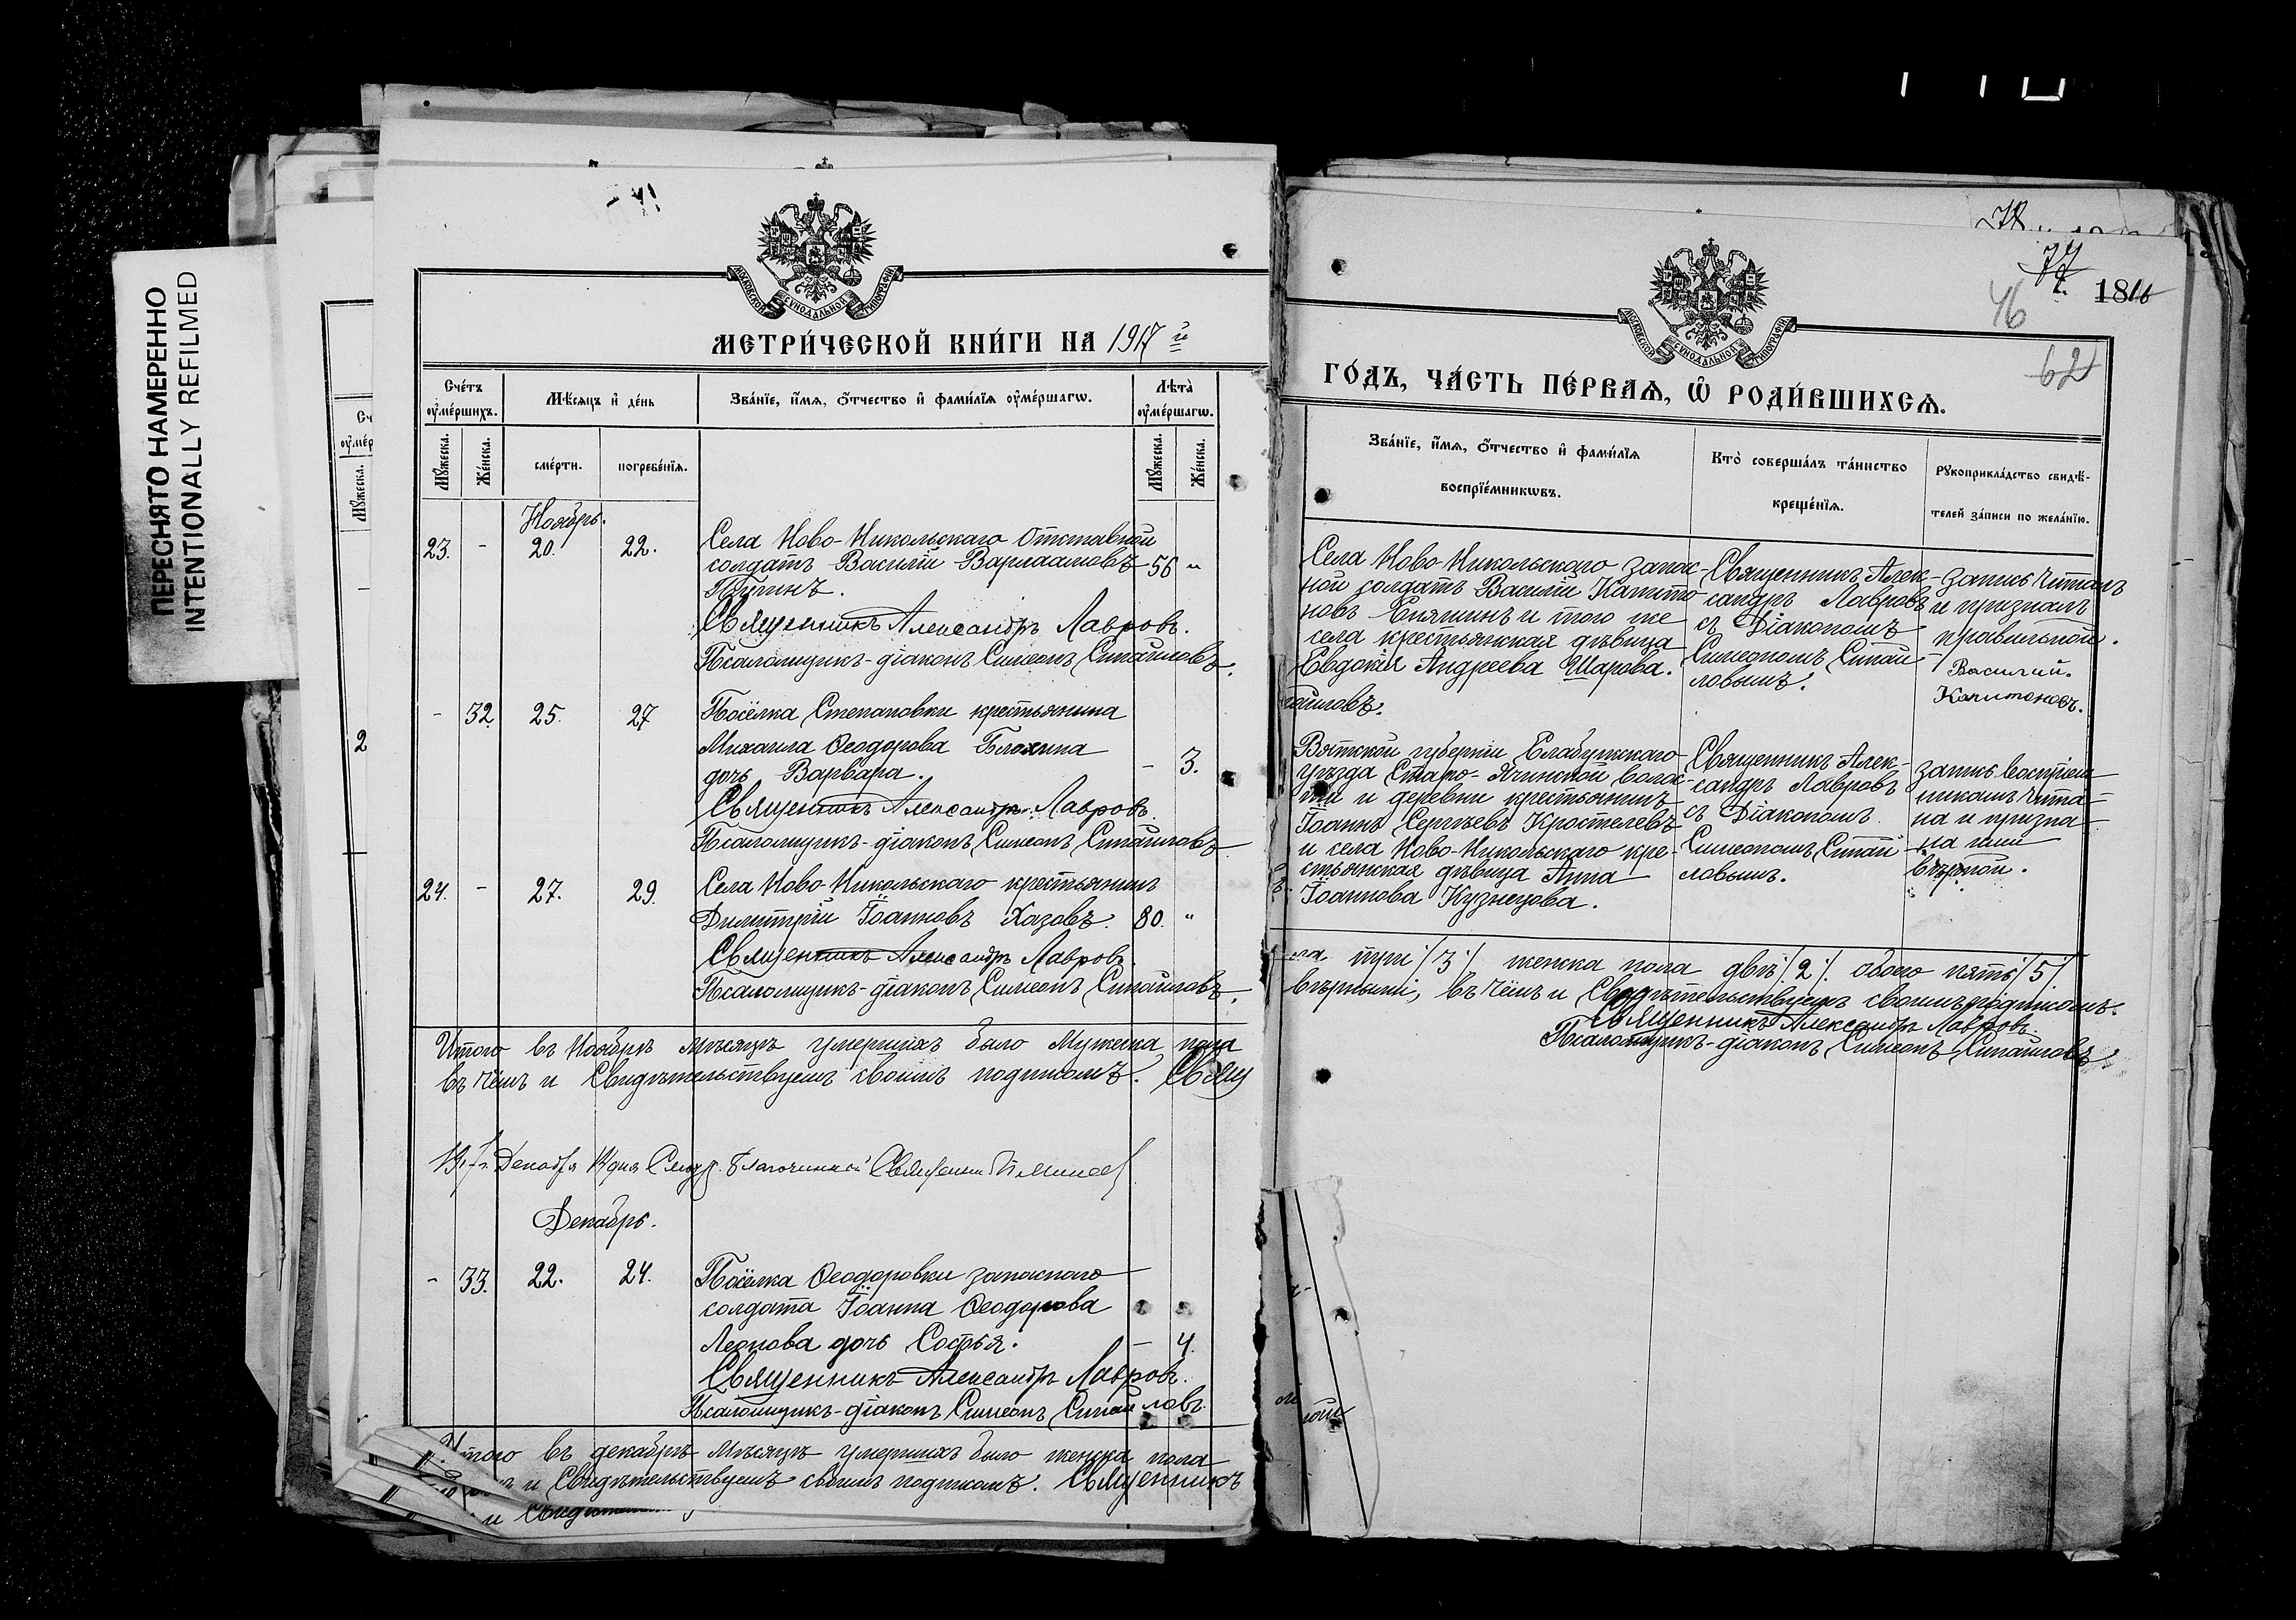 ПЕРЕСНЯТО НАМЕРЕННО
INTENTIONALLY REFILMED
МОСКОВСКОЙ СѴНОДАЛЬНОЙ ТИПОГРАФІИ
МЕТРИ́ЧЕСКОЙ КНИ́ГИ НА 1917 й
Сче́тъ ᲂу҆ме́ршихъ.
Мѣ́сяцъ и҆ де́нь
Зва́нїе, и҆́мѧ, ѻ҆́тчество и҆ фами́лїѧ ᲂу҆ме́ршагѡ.
Лѣ́та ᲂу҆ме́ршагѡ.
Мꙋ́жеска.
Же́нска.
сме́рти.
погребе́нїѧ.
Мꙋ́жеска.
Же́нска.
Ноябрь.
23. - 20. 22. Села Ново-Никольскаго Отставной
солдатъ Василій Варлаамовъ 56 "
Священникъ Александръ Лавровъ.
Псаломщикъ-діаконъ Симеонъ Сипайловъ.
- 32. 25. 27 Посёлка Степановки крестьянина
Михаила Ѳеодорова Блохина
дочь Варвара. - 3.
Священникъ Александръ Лавровъ.
Псаломщикъ-діаконъ Симеонъ Сипайловъ.
24. - 27. 29. Села Ново-Никольскаго крестьянинъ
Димитрій Іоанновъ Хазовъ. 80. "
Священникъ Александръ Лавровъ.
Псаломщикъ-діаконъ Симеонъ Сипайловъ.
Итого въ Ноябрѣ мѣсяцѣ умершихъ было Мужеска пола
въ чёмъ и Свидѣтельствуемъ своимъ подписомъ. Свящ
Декабря Благочинный Священ.
Декабрь.
- 33. 22. 24. Посёлка Ѳеодоровки запаснаго
солдата Іоанна Ѳеодорова
Леонова дочь Софья. - 4.
Священникъ Александръ Лавровъ.
Псаломщикъ-діаконъ Симеонъ Сипайловъ.
Итого въ декабрѣ мѣсяцѣ умершихъ было женска пола
и Свидѣтельствуемъ своимъ подписомъ. Священникъ
46
62
МОСКОВСКОЙ СѴНОДАЛЬНОЙ ТИПОГРАФІИ
ГО́ДЪ, ЧА́СТЬ ПЕ́РВАѦ, Ѽ РОДИ́ВШИХСѦ.
Зва́нїе, и҆́мѧ, ѻ҆́тчество и҆ фами́лїѧ
воспрїе́мникѡвъ.
Кто̀ соверша́лъ та́инство
креще́нїѧ.
Рꙋкоприкла́дство свидѣ́-
телей за́писи по жела́нїю.
Села Ново-Никольскаго запас-
ной солдатъ Василій Капито
новъ Синяшинъ и того же
села крестьянская дѣвица
Евдокія Андреева Шарова.
Священникъ Алек-
сандръ Лавровъ
съ Діакономъ
Симеономъ Сипай
ловымъ.
Запись читалъ
и призналъ
правильной.
Василий.
Капитоновъ.
Вятской губерніи Елабужскаго
уѣзда Старо-Ячинской волос-
ти и деревни крестьянинъ
Іоаннъ Сергѣевъ Кростелевъ
и села Ново-Никольскаго кре-
стьянская дѣвица Анна
Іоаннова Кузнецова.
Священникъ Алек-
сандръ Лавровъ
съ Діакономъ
Симеономъ Сипай
ловымъ.
Запись воспріем
никамъ чита-
на и призна-
на ими
вѣрной.
три /3/ женска пола двѣ /2/. обоего пять /5/
вѣрными, въ чёмъ и Свидѣтельствуемъ своимъ подписомъ.
Священникъ Александръ Лавровъ.
Псаломщикъ-діаконъ Симеонъ Сипайловъ.